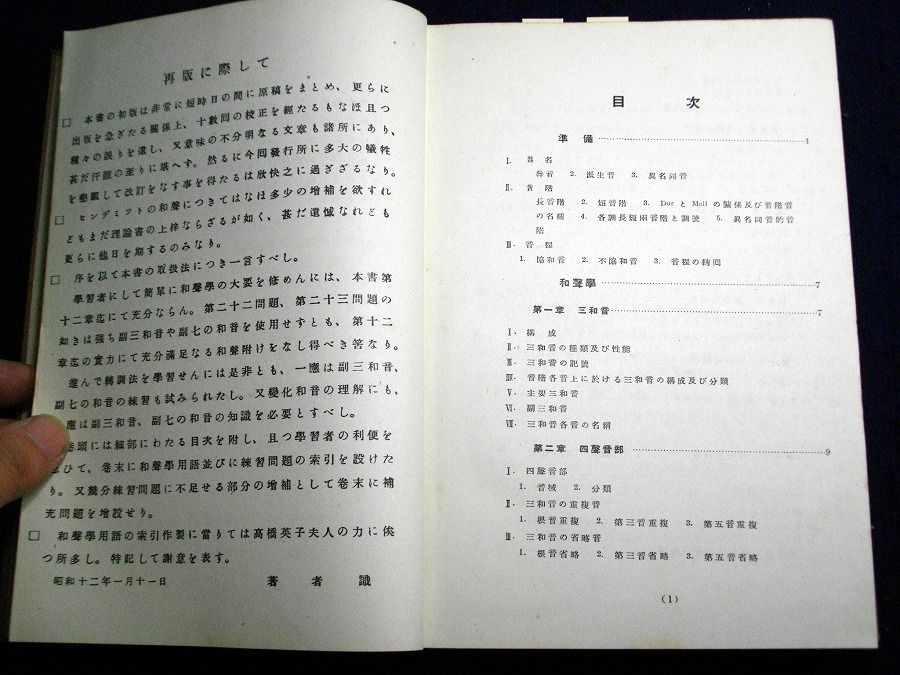 再版に際して
□ 本書の初版は非常に短時日の間に原稿をまとめ、更らに
出版を急ぎたる關係上、十數回の校正を經たるもなほ且つ
種々の誤りを遺し、又意味の不分明なる文章も諸所にあり、
甚だ汗顏の至りに堪へず。然るに今回發行所に多大の犠牲
を懇願して改訂をなす事を得たるは欣快之に過ぎざるなり。
□ ヒンデミツトの和聲につきてはなほ多少の增補を欲すれ
どもまだ理論書の上梓ならざるが如く、甚だ遺憾なれども
更らに他日を期するのみなり。
□ 序を以て本書の取扱法につき一言すべし。
學習者にして簡單に和聲學の大要を修めんには、本書第
十二章迄にて充分ならん。第二十二問題、第二十三問題の
如きは强ち副三和音や副七の和音を使用せずとも、第十二
章迄の實力にて充分滿足なる和聲附けをなし得べき筈なり。
進んで轉調法を學習せんには是非とも、一應は副三和音、
副七の和音の練習も試みられたし。又變化和音の理解にも、
應は副三和音、副七の和音の知識を必要とすべし。
卷頭には細部にわたる目次を附し、且つ學習者の利便を
ひて、卷末に和聲學用語並びに練習問題の索引を設けた
り。又幾分練習問題に不足せる部分の增補として卷末に補
充問題を增設せり。
□ 和聲學用語の索引作製に當りては高橋英子夫人の力に俟
つ所多し。特記して謝意を表す。
昭和十二年一月十一日 著者識
目次
準備 1
I. 音名
幹音 2. 派生音 3. 異名同音
II. 音階
長音階 2. 短音階 3. Dur と Moll の關係及び音階音
の名稱 4. 各調長短兩音階と調號 5. 異名同音的音
階
III. 音程
1. 協和音 2. 不協和音 3. 音程の轉回
和聲學 7
第一章 三和音 7
I. 構成
II. 三和音の種類及び性能
III. 三和音の記號
IV. 音階各音上に於ける三和音の構成及び分類
V. 主要三和音
VI. 副三和音
VII. 三和音各音の名稱
第二章 四聲音部 9
I. 四聲音部
1. 音域 2. 分類
II. 三和音の重複音
1. 根音重複 2. 第三音重複 3. 第五音重複
III. 三和音の省略音
1. 根音省略 2. 第三音省略 3. 第五音省略
(1)